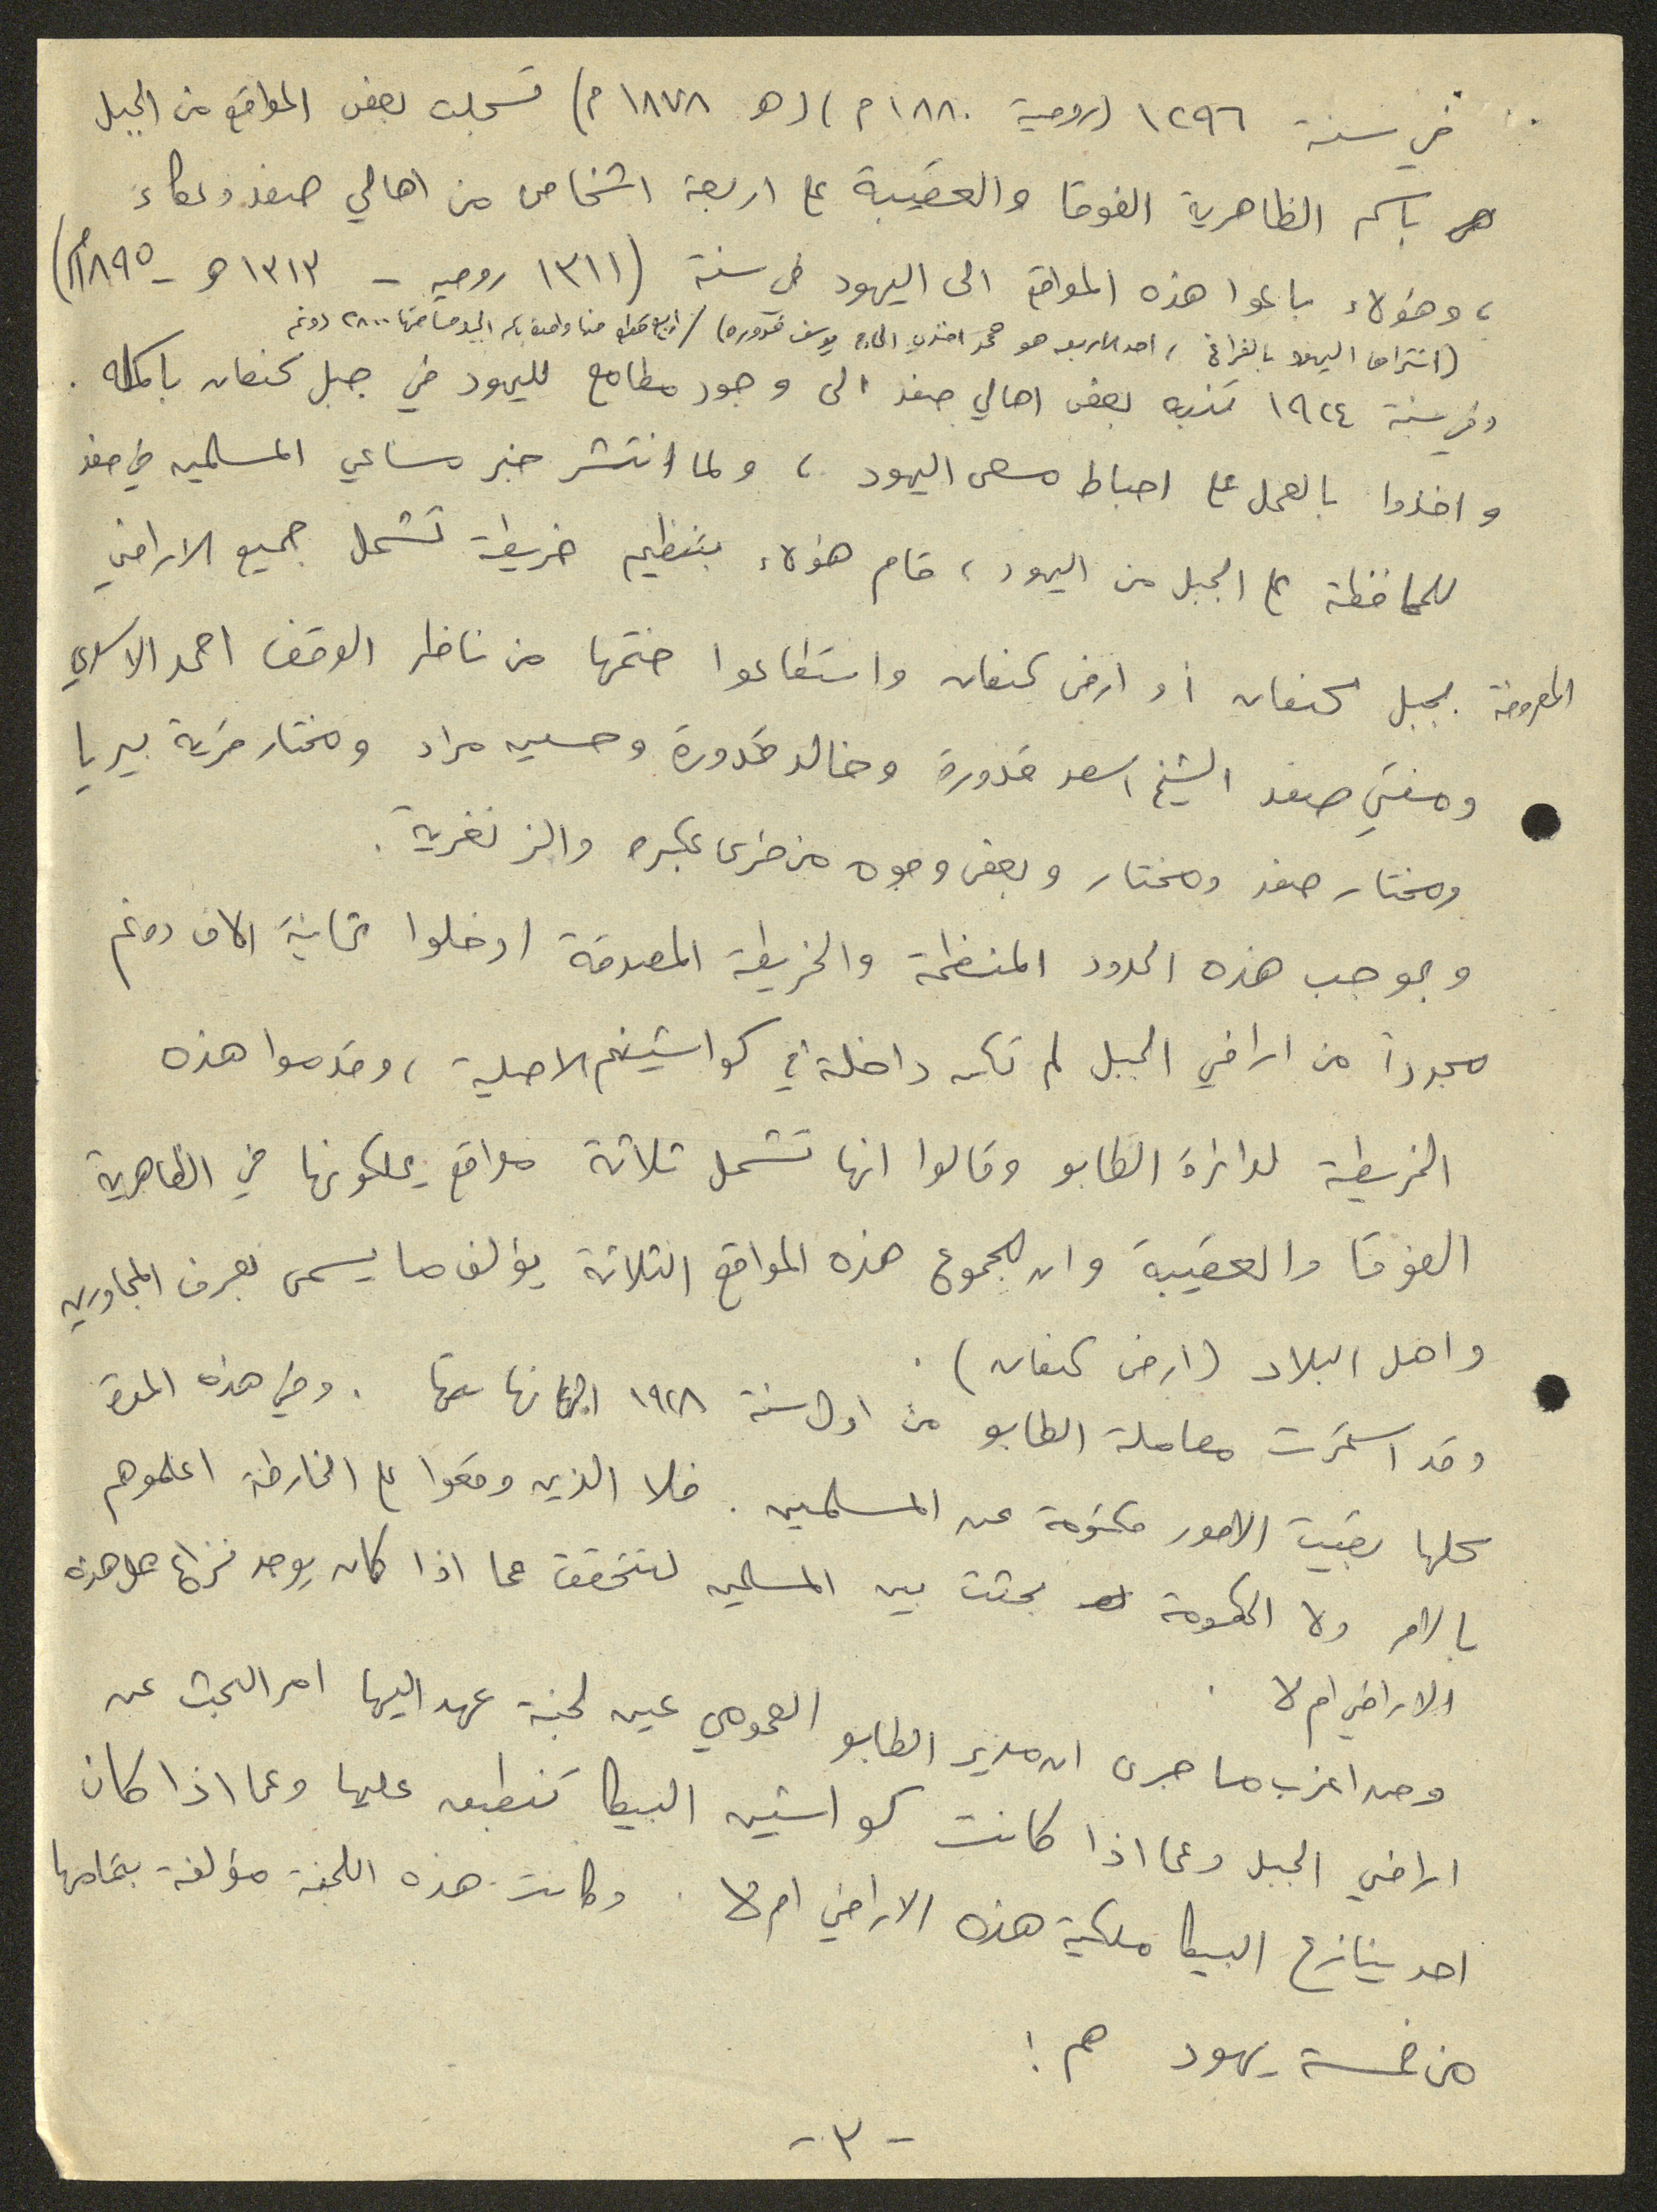 في سنة ١٢٩٦ (رومية ١٨٨٠ م) (هـ ١٨٧٨ م) تسجلت بعض المواقع من الجبل
باسم الظاهرية الفوقا والعقيبة على اربعة اشخاص من اهالي صفد وعكاء
، وهؤلاء باعوا هذه المواقع الى اليهود في سنة (١٣١١ روميه - ١٣١٣ هـ - ١٨٩٥ م)
(اشتراها اليهود بالفراغ ، احد الاربعه هو محمد افندي الحاج يوسف قدوره) / اربع قطع مساحتها ٢٨٠٠ دونم
وفي سنة ١٩٢٤ تنبه بعض اهالي صفد الى وجود مطامع لليهود في جبل كنعان باكمله .
واخذوا بالعمل على احباط مسعى اليهود ، ولما انتشر خبر مساعي المسلمين في صفد
للمحافظة على الجبل من اليهود ، قام هؤلاء بتنظيم خريطة تشمل جميع الاراضي
المعروفة بجبل كنعان أو ارض كنعان واستطاعوا ختمها من ناظر الوقف احمد الاسدي
ومفتي صفد الشيخ اسعد قدورة وخالد قدورة وحسين مراد ومختار قرية بيريا
ومختار صفد ومختار وبعض وجوه من قرى عكبره والزنغرية .
وبموجب هذه الحدود المنظمة والخريطة المصدقة ادخلوا ثمانية الاف دونم
مجدداً من اراضي الجبل لم تكن داخلة في كواشينهم الاصلية ، وقدموا هذه
الخريطة لدائرة الطابو وقالوا انها تشمل ثلاثة مواقع يملكونها في الظاهرية
الفوقا والعقيبة وان مجموع هذه المواقع الثلاثة يؤلف ما يسمى بعرف المجاورين
واهل البلاد (ارض كنعان) .
وقد استمرت معاملة الطابو من اول سنة ١٩٢٨ الى نهايتها . وفي هذه المدة
كلها بقيت الامور مكتومة عن المسلمين . فلا الذين وقعوا على الخارطة اعلموهم
بالامر ولا الحكومة بحثت بين المسلمين لتتحقق عما اذا كان يوجد نزاع على هذه
الاراضي ام لا .
ومن اغرب ما جرى ان مدير الطابو العمومي عين لجنة عهد اليها امر البحث عن
اراضي الجبل وعما اذا كانت كواشين البيكا تنطبق عليها وعما اذا كان
احد ينازع البيكا ملكية هذه الاراضي ام لا . وكانت هذه اللجنة مؤلفة بتمامها
من خمسة يهود هم :
- ٣ -